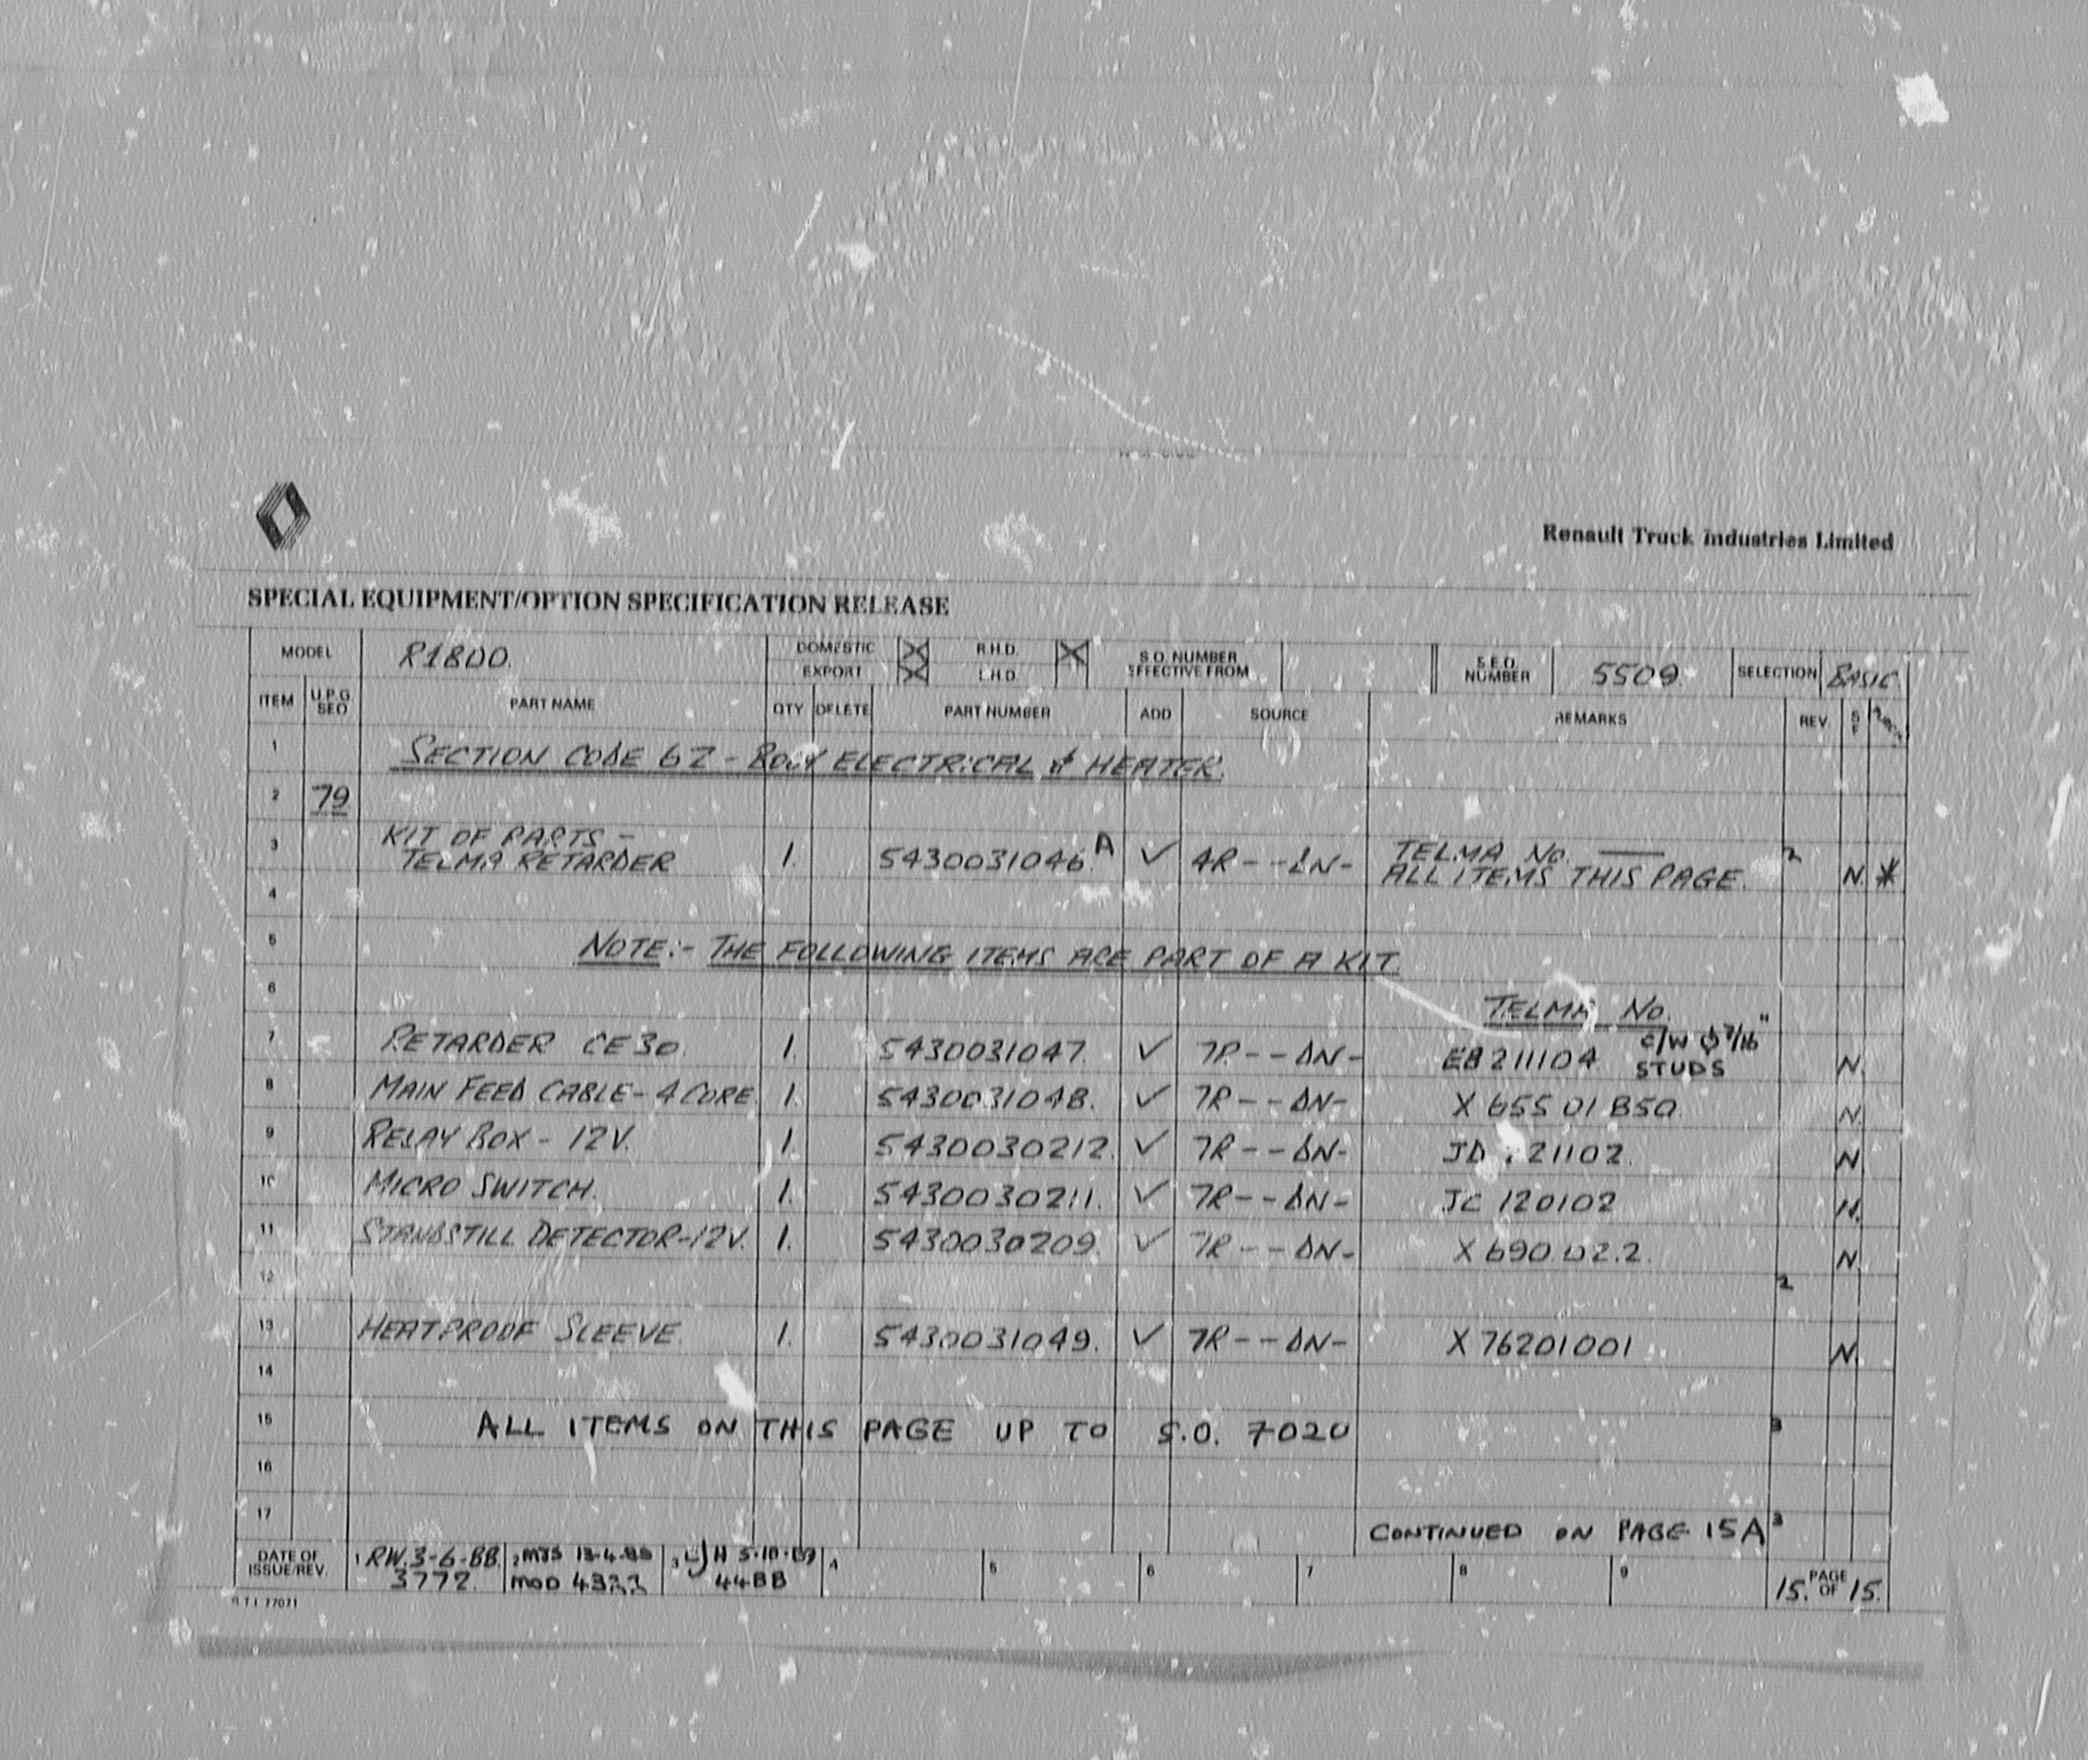 Renault Truck Industries Limited
SPECIAL EQUIPMENT/OPTION SPECIFICATION RELEASE
MODEL R1800. DOMESTIC EXPORT R.H.D. L.H.D. S.O. NUMBER EFFECTIVE FROM S.E.O. NUMBER 5509 SELECTION BASIC
ITEM U.P.G. SEQ PART NAME QTY DELETE PART NUMBER ADD SOURCE REMARKS REV.
1 SECTION CODE 6Z - BODY ELECTRICAL & HEATER.
2 79
3 KIT OF PARTS - TELMA RETARDER 1. 5430031046 A ✓ 4R - - ΔN - TELMA No. —— ALL ITEMS THIS PAGE. 2 N. *
4
5 NOTE:- THE FOLLOWING ITEMS ARE PART OF A KIT.
6 TELMA No.
7 RETARDER CE30. 1. 5430031047. ✓ 7R - - ΔN - EB211104 C/W ϕ 7/16" STUDS N.
8 MAIN FEED CABLE - 4 CORE. 1. 5430031048. ✓ 7R - - ΔN - X 655 01 850 N.
9 RELAY BOX - 12V. 1. 5430030212. ✓ 7R - - ΔN - 21102. N
10 MICRO SWITCH. 1. 5430030211. ✓ 7R - - ΔN - JC 120102 N.
11 STANDSTILL DETECTOR-12V. 1. 5430030209. ✓ 7R - - ΔN - X 690.02.2. N
12 2
13 HEATPROOF SLEEVE. 1. 5430031049. ✓ 7R - - ΔN - X 76201001 N.
14
15 ALL ITEMS ON THIS PAGE UP TO S.O. 7020 3
16
17 CONTINUED ON PAGE 15A 3
DATE OF ISSUE/REV. 1 RW. 3-6-88. 3772. 2 MJS MOD 3 5.10.89 4488 4 5 6 7 8 9 15. PAGE OF 15.